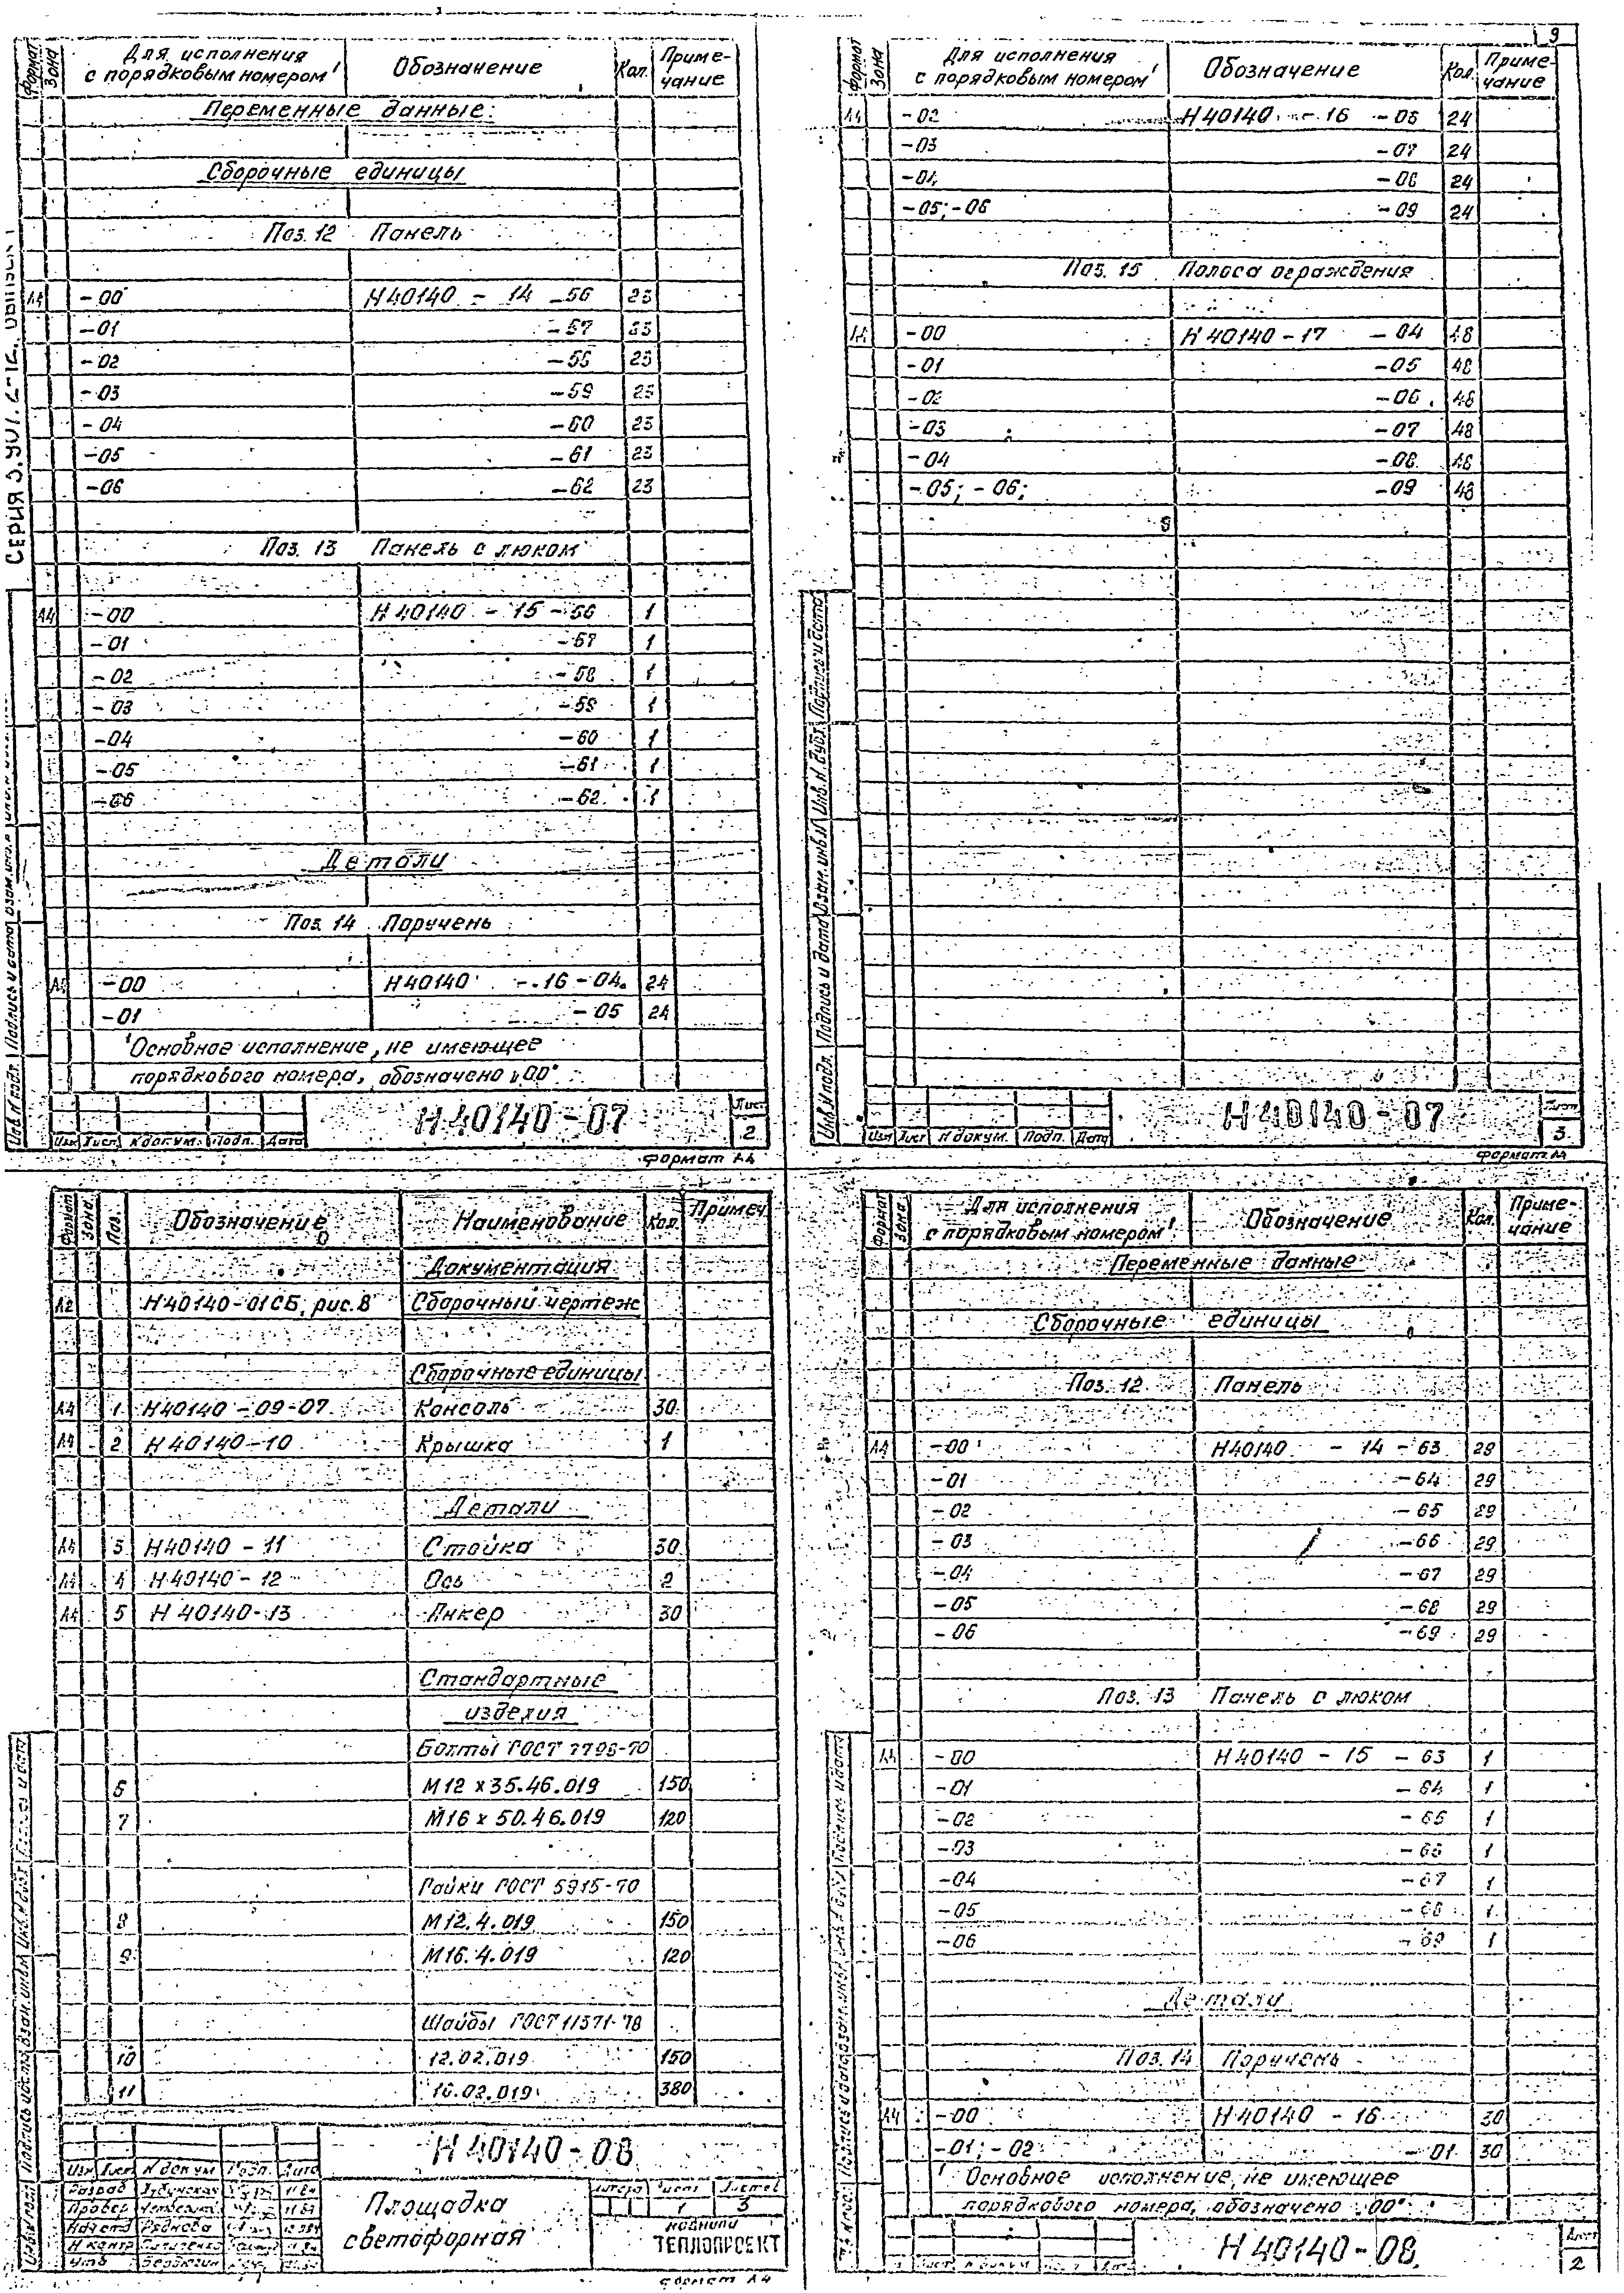 СЕРИЯ 3.907.2-12. ВЫПУСК 1
Формат Зона Для исполнения с порядковым номером¹ Обозначение Кол. Примечание
Переменные данные:
Сборочные единицы
Поз. 12 Панель
А4 -00 Н40140 - 14 -56 23
-01 -57 23
-02 -58 23
-03 -59 23
-04 -60 23
-05 -61 23
-06 -62 23
Поз. 13 Панель с люком
А4 -00 Н40140 - 15 -56 1
-01 -57 1
-02 -58 1
-03 -59 1
-04 -60 1
-05 -61 1
-06 -62 1
Детали
Поз. 14 Поручень
А4 -00 Н40140 - 16 -04 24
-01 -05 24
¹Основное исполнение, не имеющее
порядкового номера, обозначено „00"
Н40140-07
Лист
2
Изм Лист N докум. Подп. Дата
Инв.N подл. Подпись и дата Взам.инв.N
формат А4
9
Формат Зона Для исполнения с порядковым номером¹ Обозначение Кол. Примечание
А4 -02 Н40140 - 16 -06 24
-03 -07 24
-04 -08 24
-05; -06 -09 24
Поз. 15 Полоса ограждения
А4 -00 Н40140-17 -04 48
-01 -05 48
-02 -06 48
-03 -07 48
-04 -08 48
-05; -06; -09 48
Инв.N подл. Подпись и дата Взам.инв.N Инв.N дубл. Подпись и дата
Н40140-07
Лист
3
Изм Лист N докум. Подп. Дата
формат А4
Формат Зона Поз. Обозначение Наименование Кол. Примеч.
Документация
А2 Н40140-01СБ, рис.8 Сборочный чертеж
Сборочные единицы
А4 1 Н40140-09-07 Консоль 30
А4 2 Н40140-10 Крышка 1
Детали
А4 3 Н40140-11 Стойка 30
А4 4 Н40140-12 Ось 2
А4 5 Н40140-13 Анкер 30
Стандартные
изделия
Болты ГОСТ 7796-70
6 М12 х 35.46.019 150
7 М16 х 50.46.019 120
Гайки ГОСТ 5915-70
8 М12.4.019 150
9 М16.4.019 120
Шайбы ГОСТ 11371-78
10 12.02.019 150
11 16.02.019 380
Н40140-08
Изм Лист N докум Подп. Дата
Разраб
Провер
Нач отд
Н контр
Утв
Площадка
светофорная
Литера Лист Листов
1 3
ТЕПЛОПРОЕКТ
формат А4
Формат Зона Для исполнения с порядковым номером¹ Обозначение Кол. Примечание
Переменные данные
Сборочные единицы
Поз. 12 Панель
А4 -00 Н40140 - 14 -63 29
-01 -64 29
-02 -65 29
-03 -66 29
-04 -67 29
-05 -68 29
-06 -69 29
Поз. 13 Панель с люком
А4 -00 Н40140 - 15 -63 1
-01 -64 1
-02 -65 1
-03 -66 1
-04 -67 1
-05 -68 1
-06 -69 1
Детали
Поз. 14 Поручень
А4 -00 Н40140 - 16 30
-01; -02 -01 30
¹ Основное исполнение, не имеющее
порядкового номера, обозначено „00"
Н40140-08
Лист
2